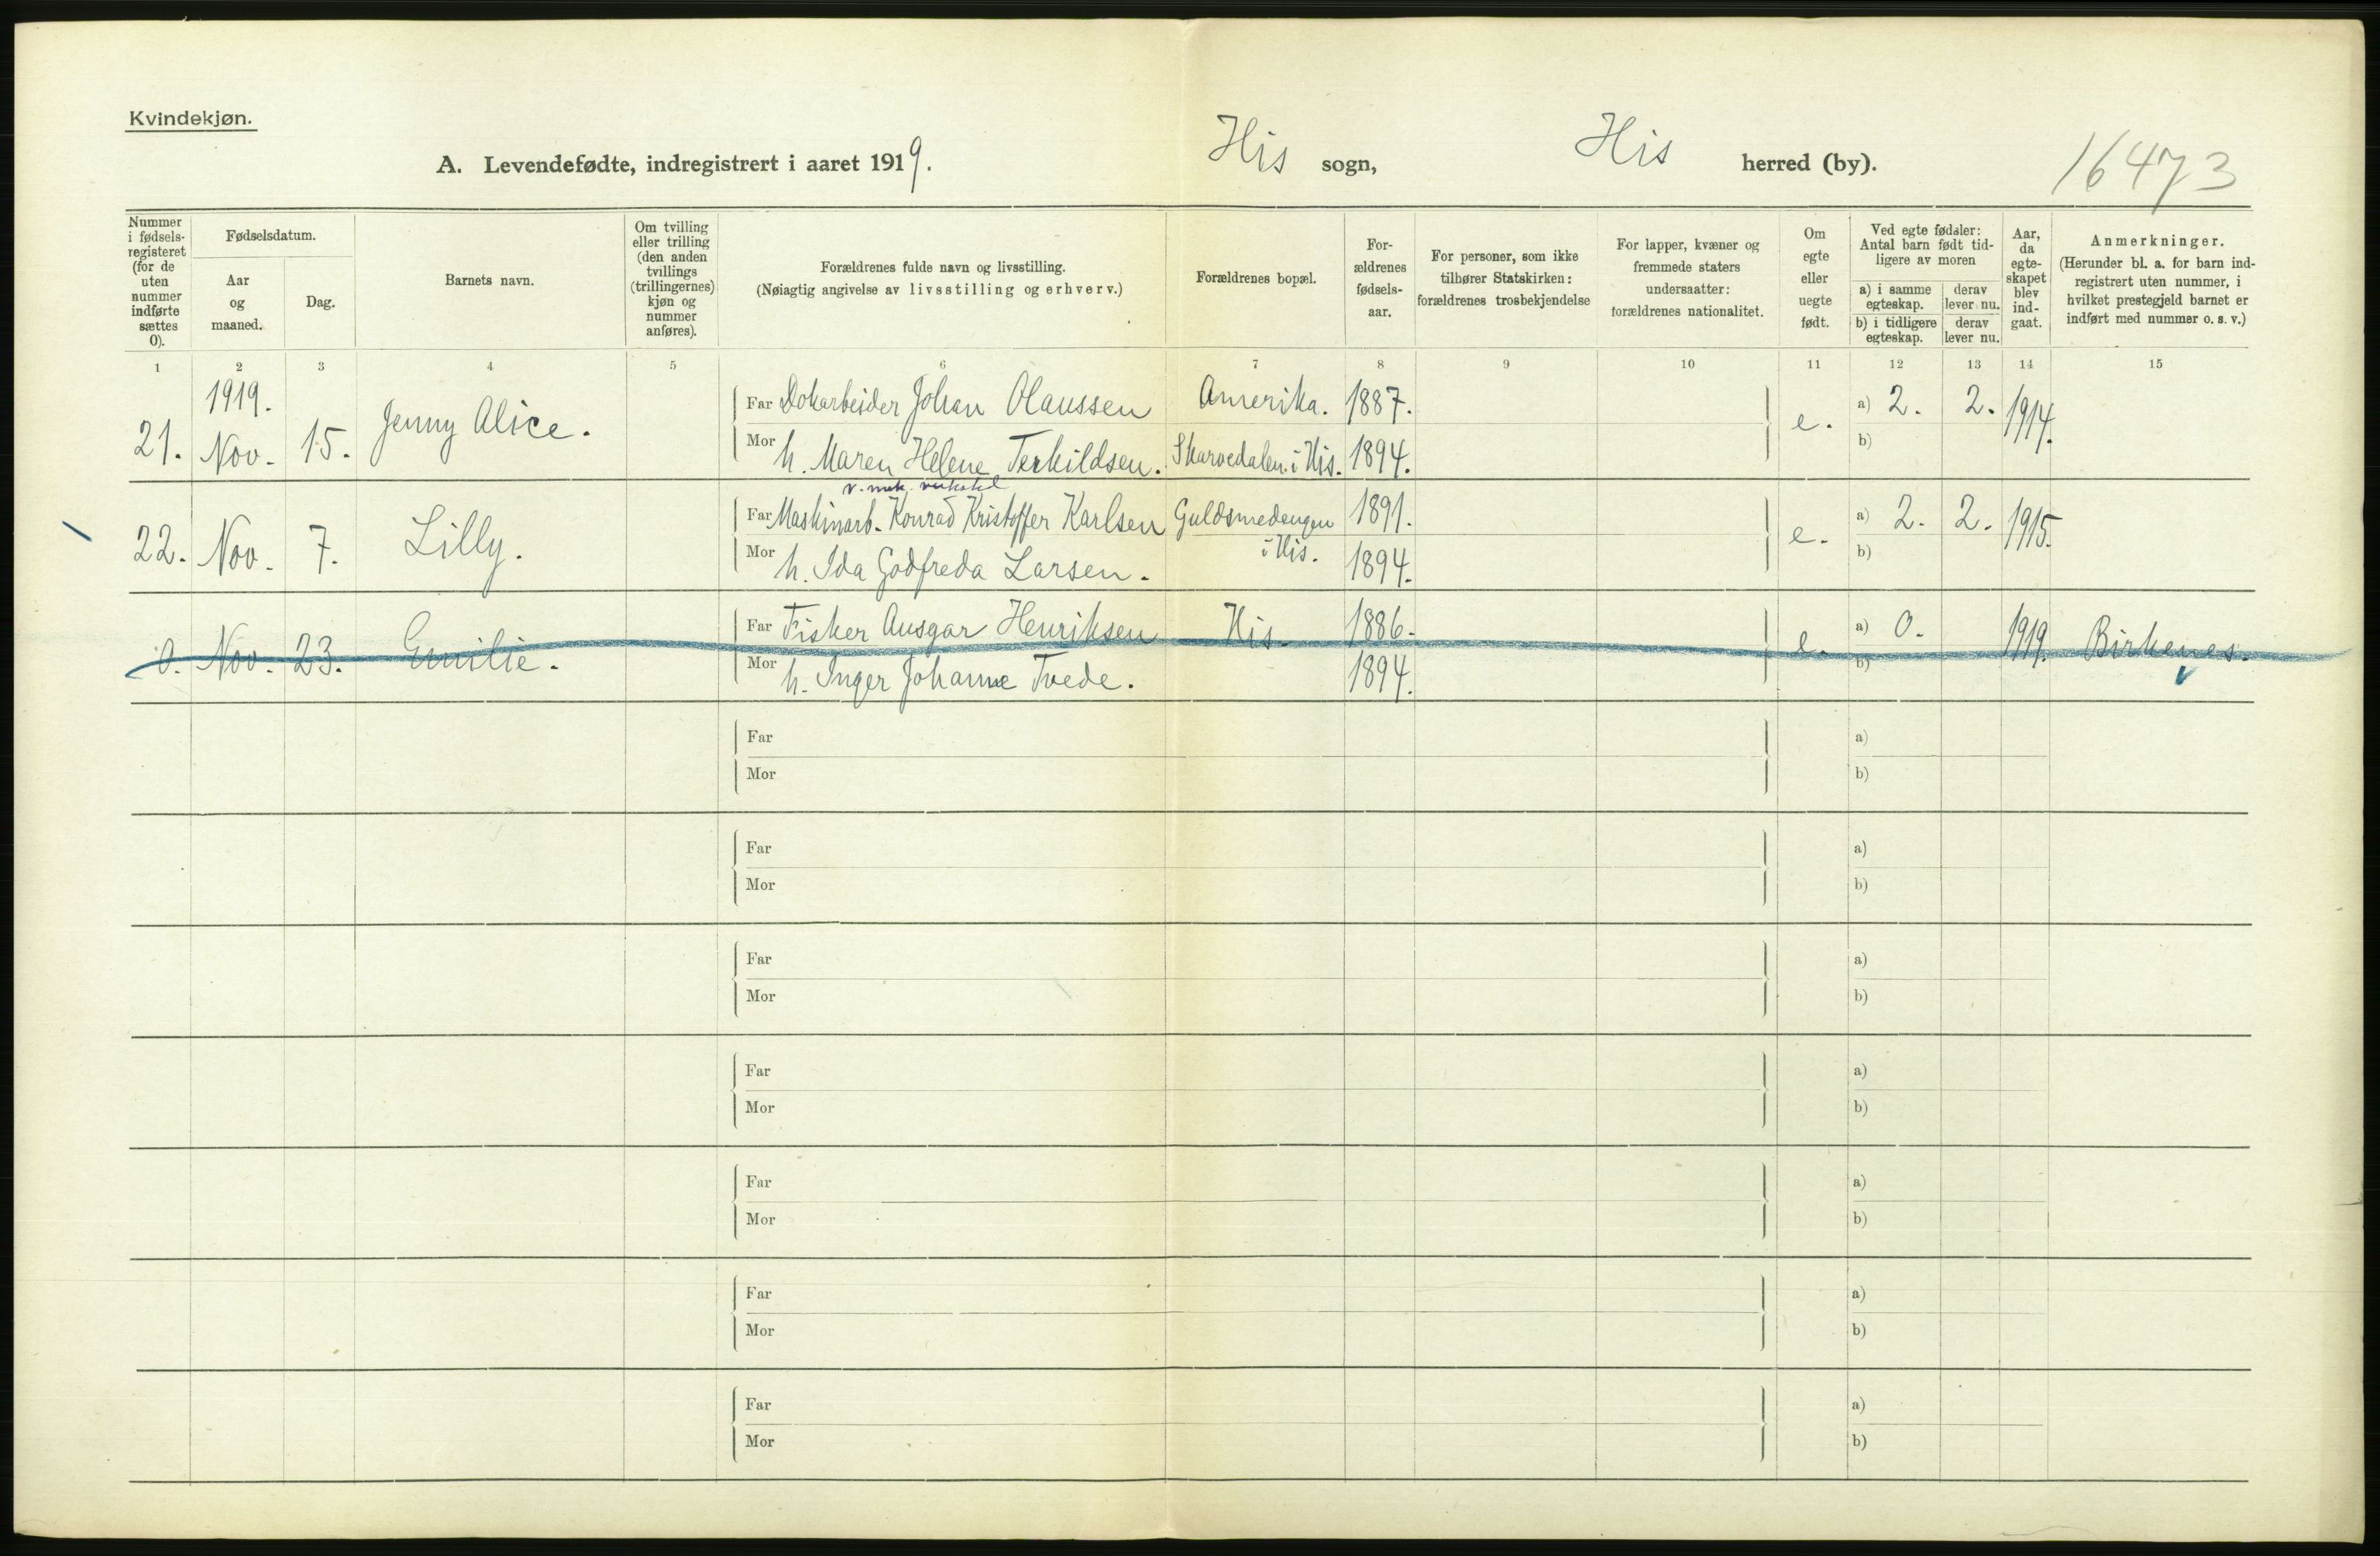 Kvindekjøn.
A. Levendefødte, indregistrert i aaret 1919. His sogn, His herred (by). 16473
Nummer i fødsels-registeret (for de uten nummer indførte sættes 0).
Fødselsdatum.
Aar og maaned.
Dag.
Barnets navn.
Om tvilling eller trilling (den anden tvillings (trillingernes) kjøn og nummer anføres).
Forældrenes fulde navn og livsstilling.
(Nøiagtig angivelse av livsstilling og erhverv.)
Forældrenes bopæl.
For-ældrenes fødsels-aar.
For personer, som ikke tilhører Statskirken: forældrenes trosbekjendelse
For lapper, kvæner og fremmede staters undersaatter: forældrenes nationalitet.
Om egte eller uegte født.
Ved egte fødsler: Antal barn født tid-ligere av moren
a) i samme egteskap. derav lever nu.
b) i tidligere egteskap. derav lever nu.
Aar, da egte-skapet blev ind-gaat.
Anmerkninger.
(Herunder bl. a. for barn ind-registrert uten nummer, i hvilket prestegjeld barnet er indført med nummer o. s. v.)
1 2 3 4 5 6 7 8 9 10 11 12 13 14 15
1919.
Far Dokarbeider Johan Olaussen Amerika. 1887. a) 2. 2.
21. Nov. 15. Jenny Alice. e. 1914.
Mor h. Maren Helene Terkildsen. Skarvedalen i His. 1894. b)
v. mek. verksted
Far Maskinarb. Konrad Kristoffer Karlsen Guldsmedengen 1891. a) 2. 2.
22. Nov. 7. Lilly. i His. e. 1915.
Mor h. Ida Godfreda Larsen. 1894. b)
Far Fisker Ansgar Henriksen His. 1886. a) 0.
0. Nov. 23. Emilie. e. 1919. Birkenes.
Mor h. Inger Johanne Tvede. 1894. b)
Far a)
Mor b)
Far a)
Mor b)
Far a)
Mor b)
Far a)
Mor b)
Far a)
Mor b)
Far a)
Mor b)
Far a)
Mor b)